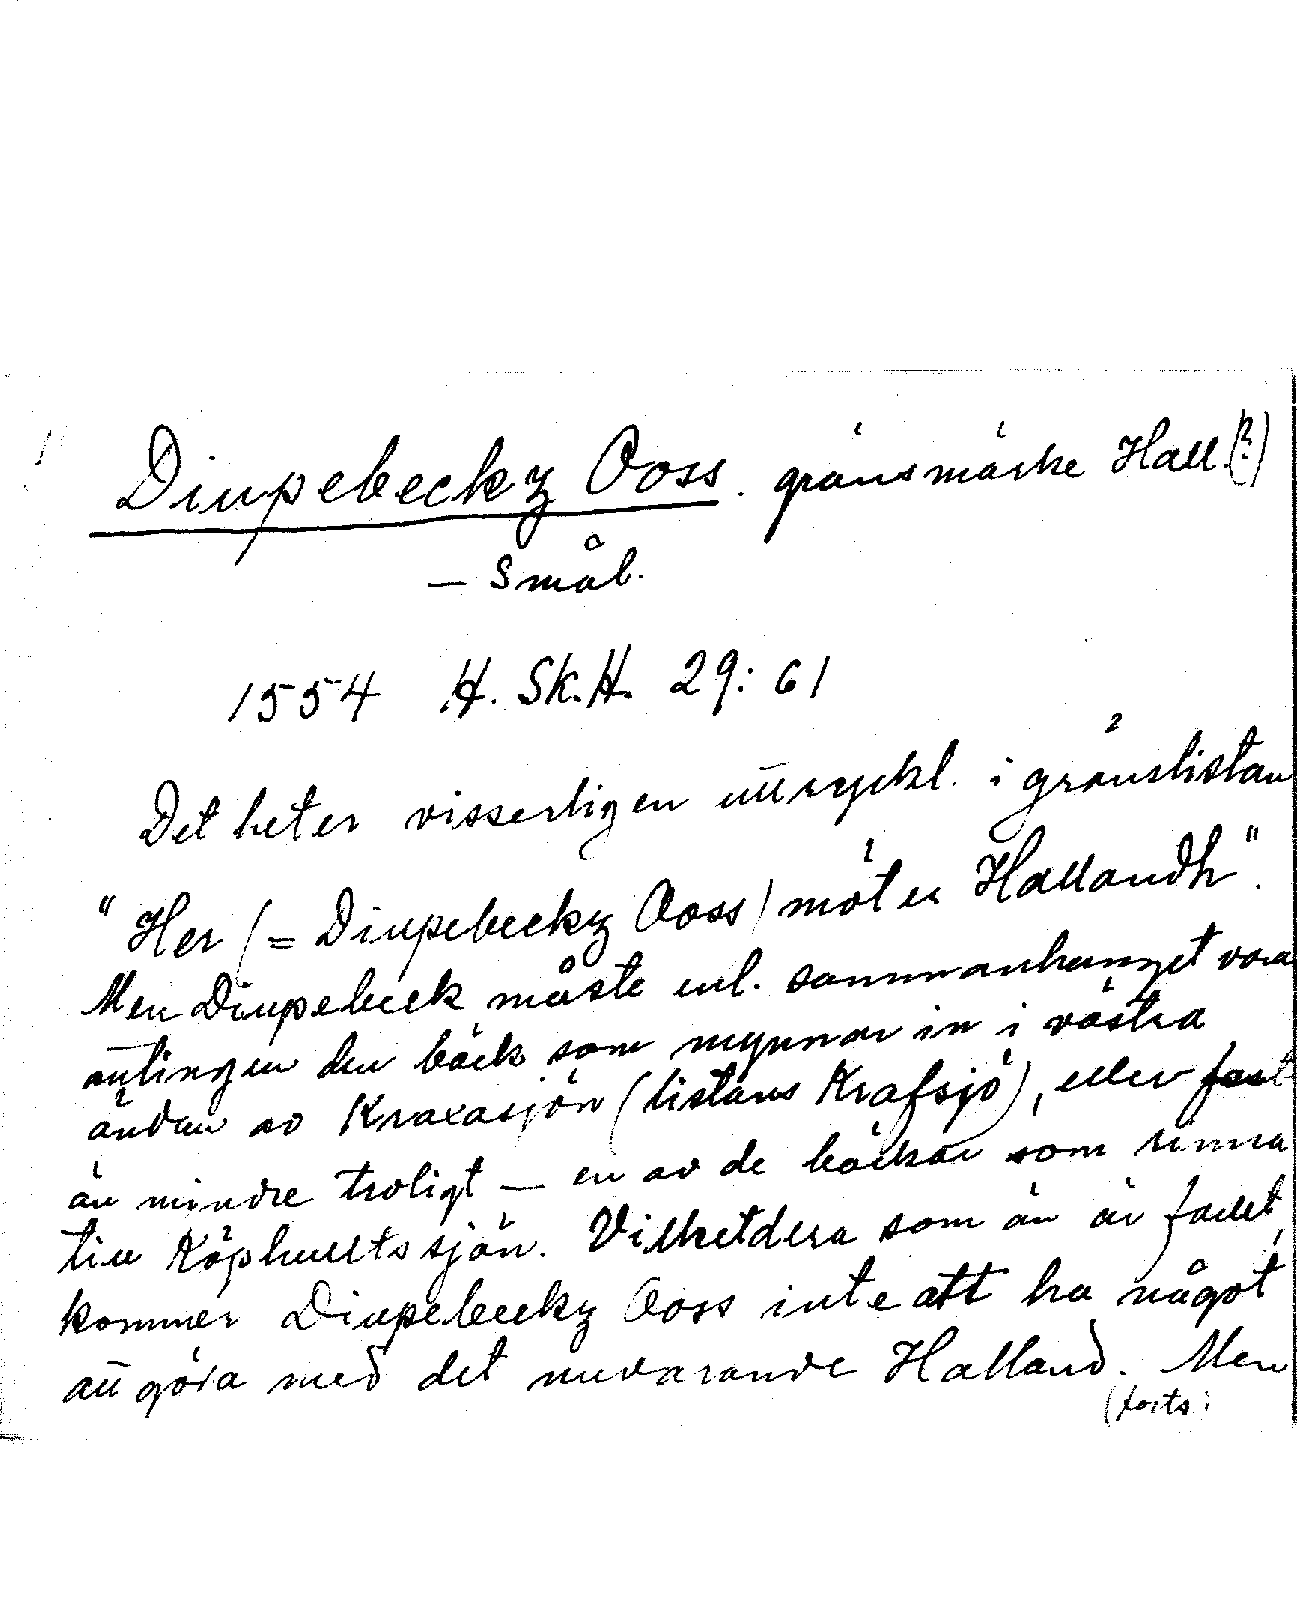 Diupebeckz Ooss. gränsmärke Hall.(?)
– Smål.
1554 H. Sk. H. 29: 61
Det heter visserligen uttryckl. i gränslistan
"Her (= Diupebeckz Ooss) möter Hallandh".
Men Diupebeck måste enl. sammanhanget vara
antingen den bäck som mynnar in i västra
ändan av Kraxasjön (listans Krafsjö), eller fast
än mindre troligt – en av de bäckar som rinna
till Köphultssjön. Vilketdera som än är fallet,
kommer Diupebeckz Ooss inte att ha något
att göra med det nuvarande Halland. Men
(forts.